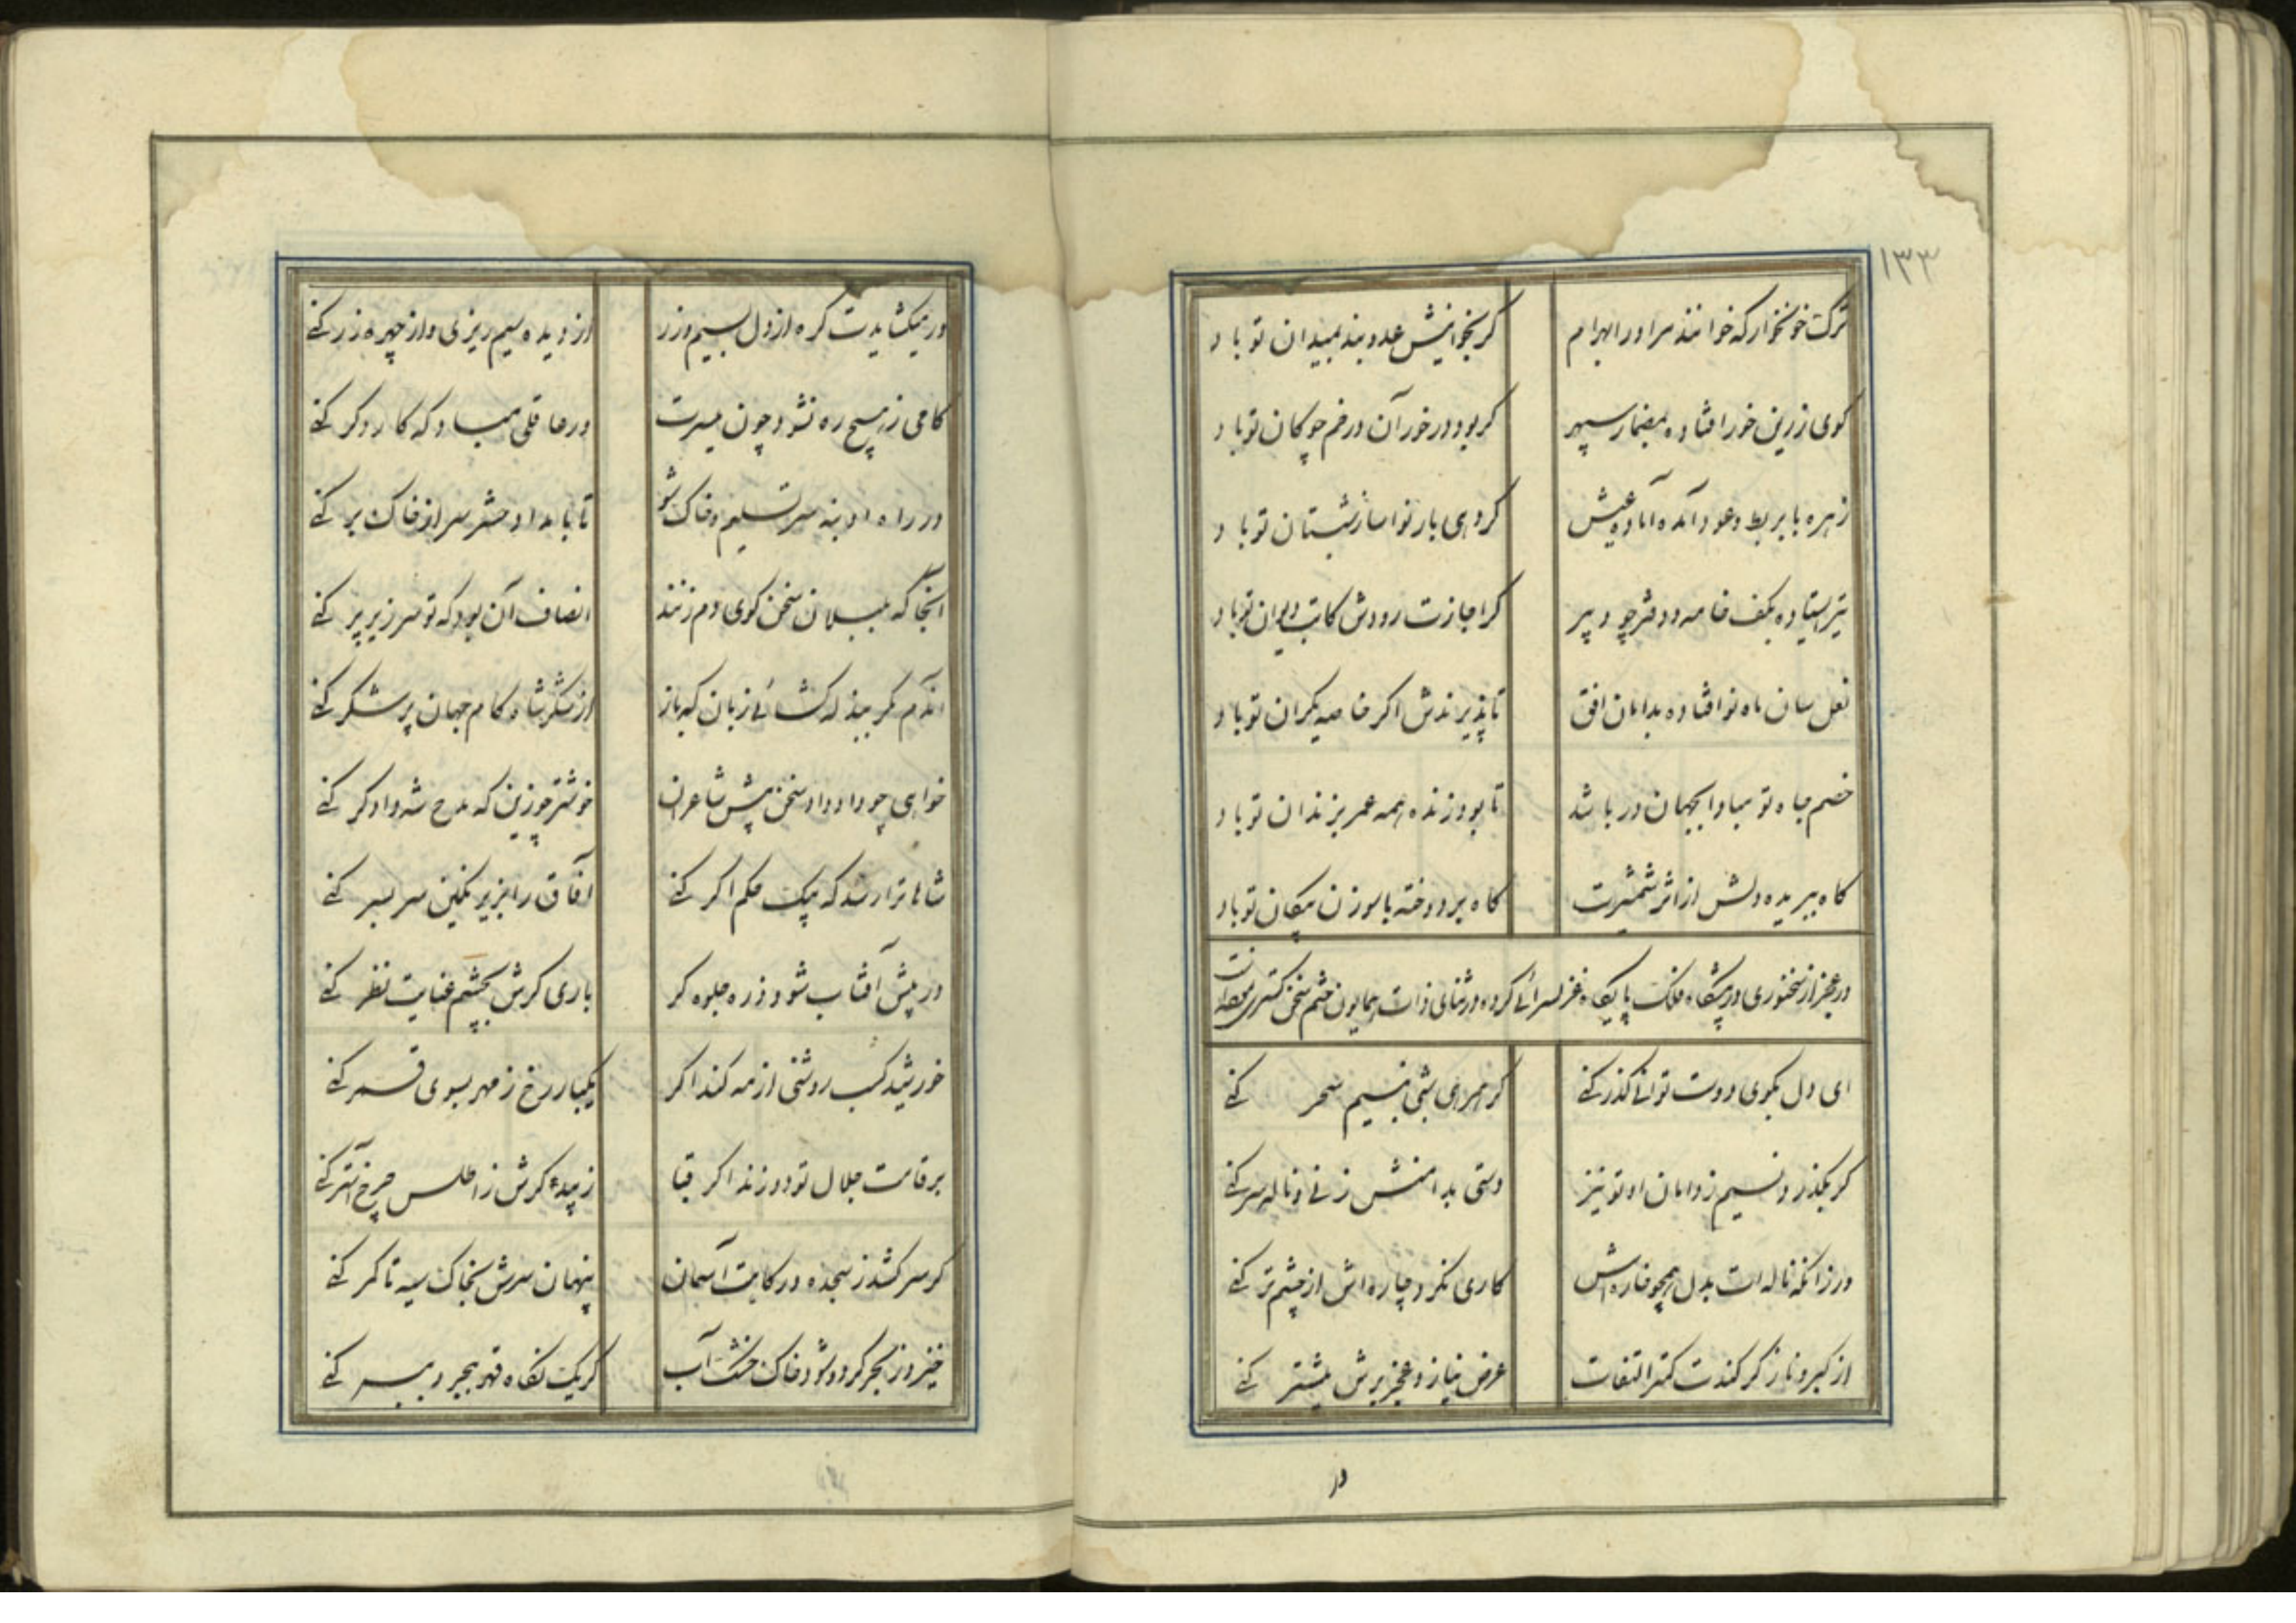 ۱۳۳
ترک خونخوار که خوانند مر او را بهرام
کر نخوانیش عدو بند بمیدان تو باد
کوی زرین خور افتاده بمضمار سپهر
کر بود در خور آن در خم چوکان تو باد
زهره با بربط و عود آمده آماده عیش
کر دهی بار نوا ساز شبستان تو باد
تیر استاده بکف خامه و دفتر چو دبیر
کر اجازت رودش کاتب دیوان تو باد
نعل سان ماه نو افتاده بدامان افق
تا پذیرندش اکر خاصه یکران تو باد
خصم جاه تو مبادا بجهان ور باشد
تا بود زنده همه عمر بزندان تو باد
کاه ببریده دلش از اثر شمشیرت
کاه بر دوخته با سوزن پیکان تو باد
در عجز از سخنوری در پیشکاه فلک پایکاه غزلسرائی کرده در ثنای ذات همایون ختم سخن کستری
ای دل بکوی دوست توانی کذر کنی
کر همرهی شبی بنسیم سحر کنی
کر بکذرد نسیم ز دامان او تو نیز
دستی بدامنش زنی و ناله سر کنی
ور زانکه ناله ات بدل همچو خاره اش
کاری نکرد چاره اش از چشم تر کنی
از کبر و ناز کر کندت کمتر التفات
عرض نیاز و عجز برش بیشتر کنی
در
ور میکشایدت کره از دل بسیم و زر
از دیده سیم ریزی و از چهره زر کنی
کامی ز هیچ ره نشود چون میسرت
ور عاقلی مباد که کار دکر کنی
در راه او بنه سر تسلیم و خاک شو
تا بامداد حشر سر از خاک بر کنی
آنجا که بلبلان سخن کوی دم زنند
انصاف آن بود که تو سر زیر پر کنی
آندم مکر ببند که کشائی زبان که باز
از شکر شاه کام جهان پر شکر کنی
خواهی چو داد داد سخن پیش شاعران
خوشتر چو زین که مدح شه دادکر کنی
شاها ترا رسد که بیک حکم اکر کنی
آفاق را بزیر نکین سر بسر کنی
در پیش آفتاب شود ذره جلوه کر
باری کرش بچشم عنایت نظر کنی
خورشید کسب روشنی از مه کند اکر
یکبار رخ ز مهر بسوی قمر کنی
بر قامت جلال تو دوزند اکر قبا
زیبد کرش ز اطلس چرخ آستر کنی
کر سر کشد ز سجده درکاهت آسمان
پنهان سرش بخاک سیه تا کمر کنی
خیزد ز بحر کرد و شود خاک خشک آب
کر یک نکاه قهر ببحر و ببر کنی